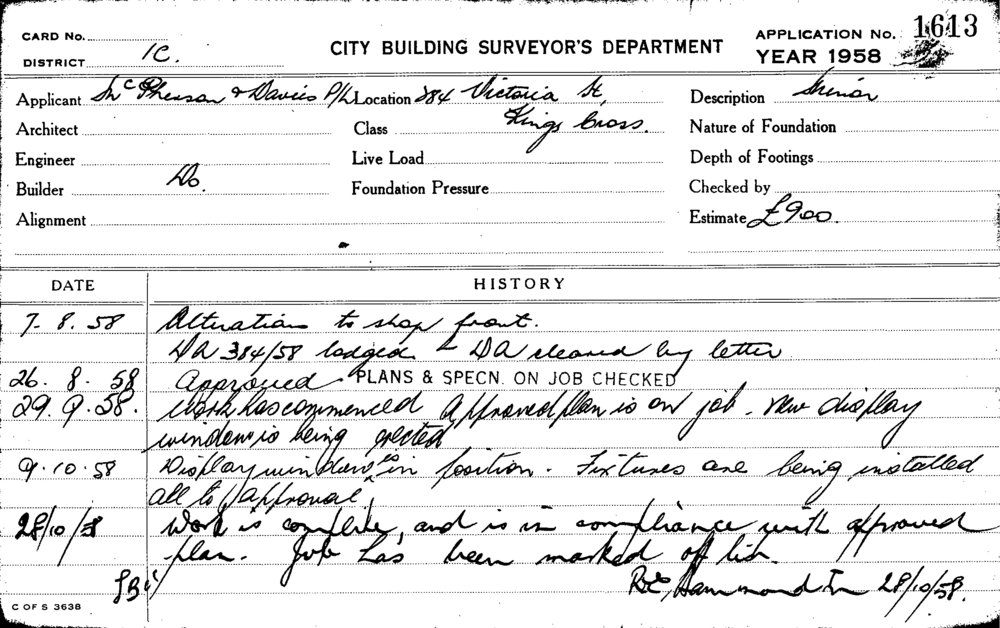 CARD No.
DISTRICT 1C.
CITY BUILDING SURVEYOR'S DEPARTMENT
APPLICATION No. 1613
YEAR 1958
Applicant McPherson & Davies P/L Location 284 Victoria St, Description
Architect Class Kings Cross. Nature of Foundation
Engineer Live Load Depth of Footings
Builder Do. Foundation Pressure Checked by
Alignment Estimate £900.
DATE HISTORY
7. 8. 58 Alterations to shop front.
DA 384/58 lodged - DA cleared by letter
26. 8. 58 Approved. PLANS & SPECN. ON JOB CHECKED
29. 9. 58. Work has commenced Approved plan is on job. New display
window is being erected
9. 10. 58 Display window is in position. Fixtures are being installed
all to approval
28/10/58 Work is complete, and is in compliance with approved
plan. Job has been marked off list.
Hammond 28/10/58.
C OF S 3638